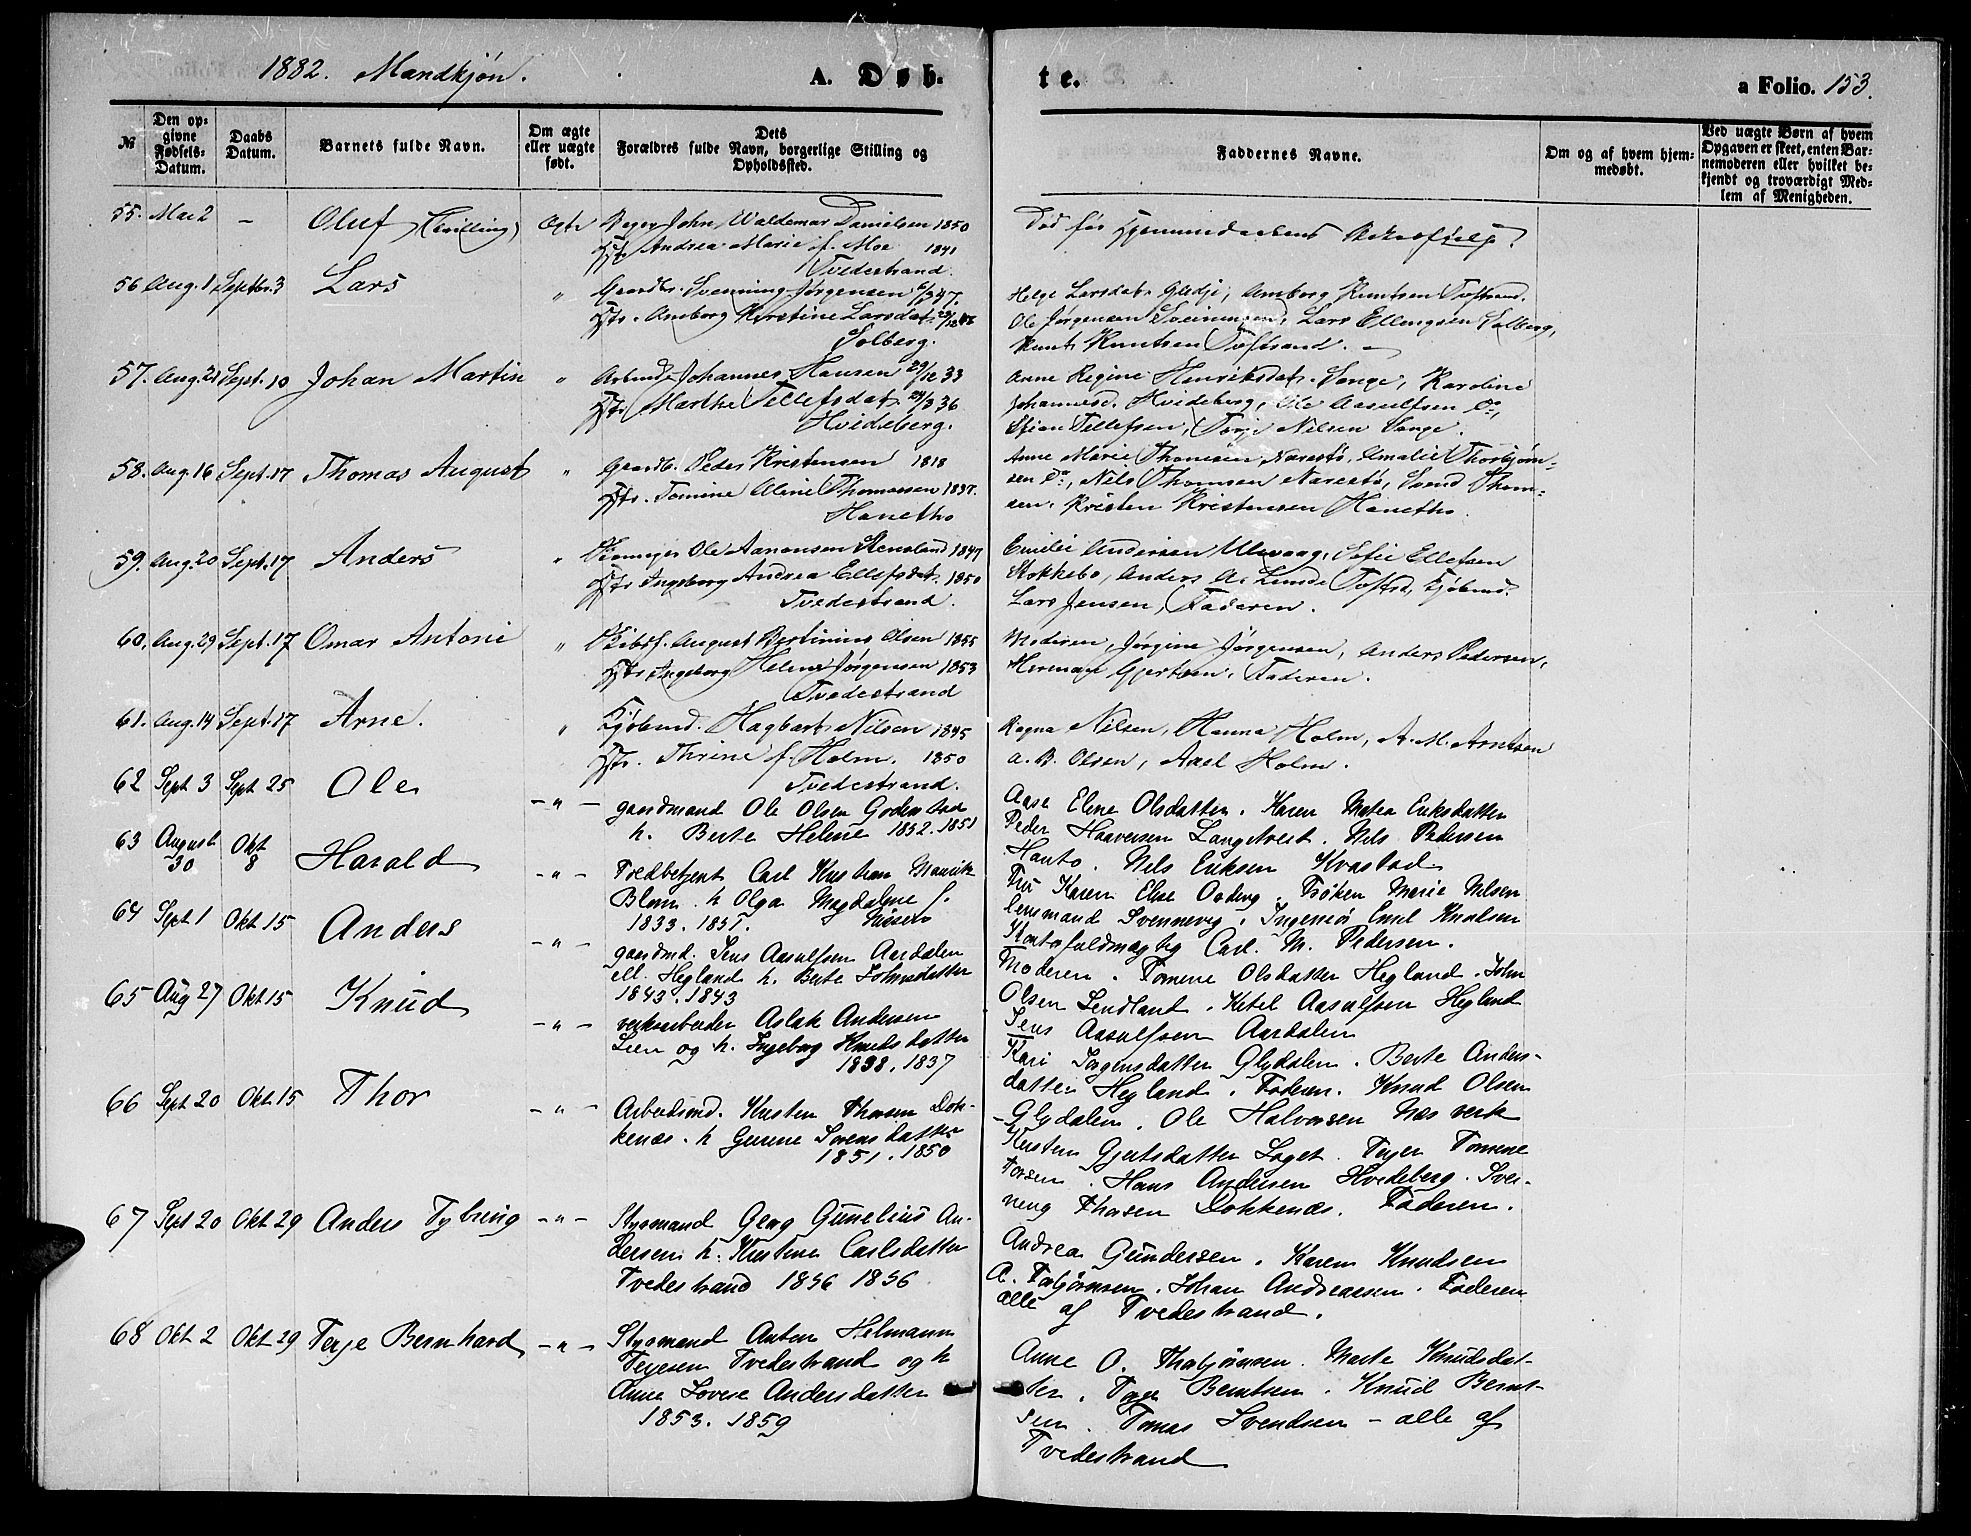 1882. Mandkjøn.
A. Døb-
te.
a Folio. 153.
№
Den op-
givne
Fødsels-
Datum.
Daabs
Datum.
Barnets fulde Navn.
Om ægte
eller uægte
født.
Dets
Forældres fulde Navn, borgerlige Stilling og
Opholdssted.
Faddernes Navne.
Om og af hvem hjem-
medøbt.
Ved uægte Børn af hvem
Opgaven er skeet, enten Bar-
nemoderen eller hvilket be-
kjendt og troværdigt Med-
lem af Menigheden.
55. Mai 2 - Oluf (Tvilling) Ægte Bager John Waldemar Danielsen 1850
Hst. Andrea Marie f. Moe 1841
Tvedestrand.
Død før Hjemmedaabens
56 Aug. 1 Septbr. 3 Lars " Gaardbr. Svenning Jørgensen 6/3 47.
Hst. Amborg Kirstine Larsdat.
Solberg.
Helge Larsdat. Gliddi, Amborg Knutsen Toftsand.
Ole Jørgensen Svenningsen, Lars Ellingsen Solberg,
Knut Knutsen Toftsand. -
57. Aug. 21 Sept. 10 Johan Martin " Arbmd. Johannes Hansen 29/12 33
Hst. Marthe Tellefsdat. 24/3 36
Hvideberg.
Anne Regine Henriksdat. Songe, Karoline
Johannesd. Hvideberg, Ole Aasulfsen do,
Stian Tellefsen, Terje Nilsen Songe.
58. Aug. 16 Sept. 17 Thomas August " Gaardb. Peder Kristensen 1818
Hst. Tomine Aline Thomassen 1837.
Hanetho
Anne Marie Thomsen, Narestø, Amalie Thorbjørn-
sen do, Nils Thomsen Narestø, Svend Thom-
sen, Kristen Kristensen Hanetho.
59. Aug. 20 Sept. 17 Anders " Ole Aanonsen Stensland 1847
Hst. Ingeborg Andrea Ellefsdat. 1850
Tvedestrand.
Emilie Andersen Ulevaag, Sofie Ellefsen
Stokkebo, Anders A. Lunde Toftsd., Kjøbmd.
Lars Jensen, Faderen.
60. Aug. 29 Sept. 17 Omar Antoni " Skibsf. August Bertinius Olsen 1855
Hst. Ingeborg Helene Jørgensen 1853
Tvedestrand
Moderen, Jørgine Jørgensen, Anders Pedersen,
Herman Gjertsen, Faderen.
61. Aug. 14 Sept. 17 Arne. " Kjøbmd. Hagbart Nilsen 1845
Hst. Thrine f. Holm. 1850
Tvedestrand.
Ragna Nilsen, Hanna Holm, A. M. Arntsen
A. B. Olsen, Axel Holm.
62 Sept 3 Sept 25 Ole - " - gaardmand Ole Olsen Goderstad
h. Berte Helene 1852. 1851
Aase Elene Olsdatter. Karen Matea Eriksdatter
Peder Haaversen Langetveit. Nils Pedersen
Hauto. Nils Eriksen Kvastad
63 August
30 Okt
8 Harald - " - Toldbetjent Carl Kristian Maurits
Blom. h Olga Magdalene f.
1833. 1857. Nissen
Fru Karen Elise Omberg. Frøken Marie Nilsen
Lensmand Svennevig. Ingeniør Emil Knudsen
Kontofuldmægtig Carl. M. Pedersen.
64 Sept 1 Okt 15 Anders - " - gaardmd. Jens Aasulfsen Aardalen
ell. Hegland h. Berte Johnsdatter
1843. 1843
Moderen. Tomine Olsdatter Hegland. John
Olsen Lindland. Ketel Aasulfsen Hegland
Jens Aasulfsen Aardalen
65 Aug 27 Okt 15 Knud - " - verksarbeider Aslak Andersen
Lien og h. Ingeborg Knudsdatter
1838. 1837
Kari Jørgensdatter Glydalen. Berte Anders-
datter Hegland. Faderen. Knud Olsen
Glydalen. Ole Halvorsen Næs verk
66 Sept 20 Okt. 15 Thor - " - Arbeidsmd. Kristen Thorsen Dok-
kenæs. h Gurine Sørensdatter
1851. 1850
Kirsten Gjertsdatter Laget. Terjer Tomine
Torsen. Hans Andersen Hvideberg. Sven-
neng Thorsen Dokkenæs. Faderen.
67 Sept 20 Okt 29 Anders Tybring - " - Styrmand Georg Gunelius An-
dersen h. Kristine Carlsdatter
Tvedestrand 1856 1856
Andrea Gundersen. Karen Knudsen
A. Torbjørnsen. Johan Andreassen. Faderen
alle af Tvedestrand.
68 Okt 2 Okt 29 Terje Bernhard - " - Styrmand Anton Helmann
Terjesen Tvedestrand og h
Anne Lovise Andersdatter
1853. 1859
Anne O. Thorbjørnsen. Marte Knudsdat-
ter. Terje Berntsen. Knud Bernt-
sen. Tomas Svendsen - alle af
Tvedestrand